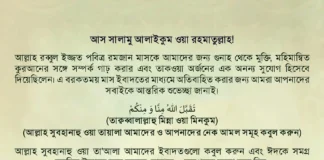 আস সালামু আলাইকুম ওয়া রহমাতুল্লাহ!
আল্লাহ রব্বুল ইজ্জত পবিত্র রমজান মাসকে আমাদের জন্য গুনাহ থেকে মুক্তি, মহিমান্বিত
কুরআনের সঙ্গে সম্পর্ক গাঢ় করার এবং তাকওয়া অর্জনের এক অনন্য সুযোগ হিসেবে
দিয়েছিলেন। এ বরকতময় মাস ইবাদতের মাধ্যমে অতিবাহিত করার জন্য আমরা আপনাদের
সবাইকে আন্তরিক শুভেচ্ছা জানাই।
تَقَبَّلَ اللّٰهُ مِنَّا وَ مِنْكُمْ
(তাক্বাব্বালাল্লাহু মিন্না ওয়া মিনকুম)
(আল্লাহ সুবহানাহু ওয়া তায়ালা আমাদের ও আপনাদের নেক আমল সমূহ কবুল করুন)
আল্লাহ সুবহানাহু ওয়া তা'আলা আমাদের ইবাদতগুলো কবুল করুন এবং ঈদকে সমগ্র